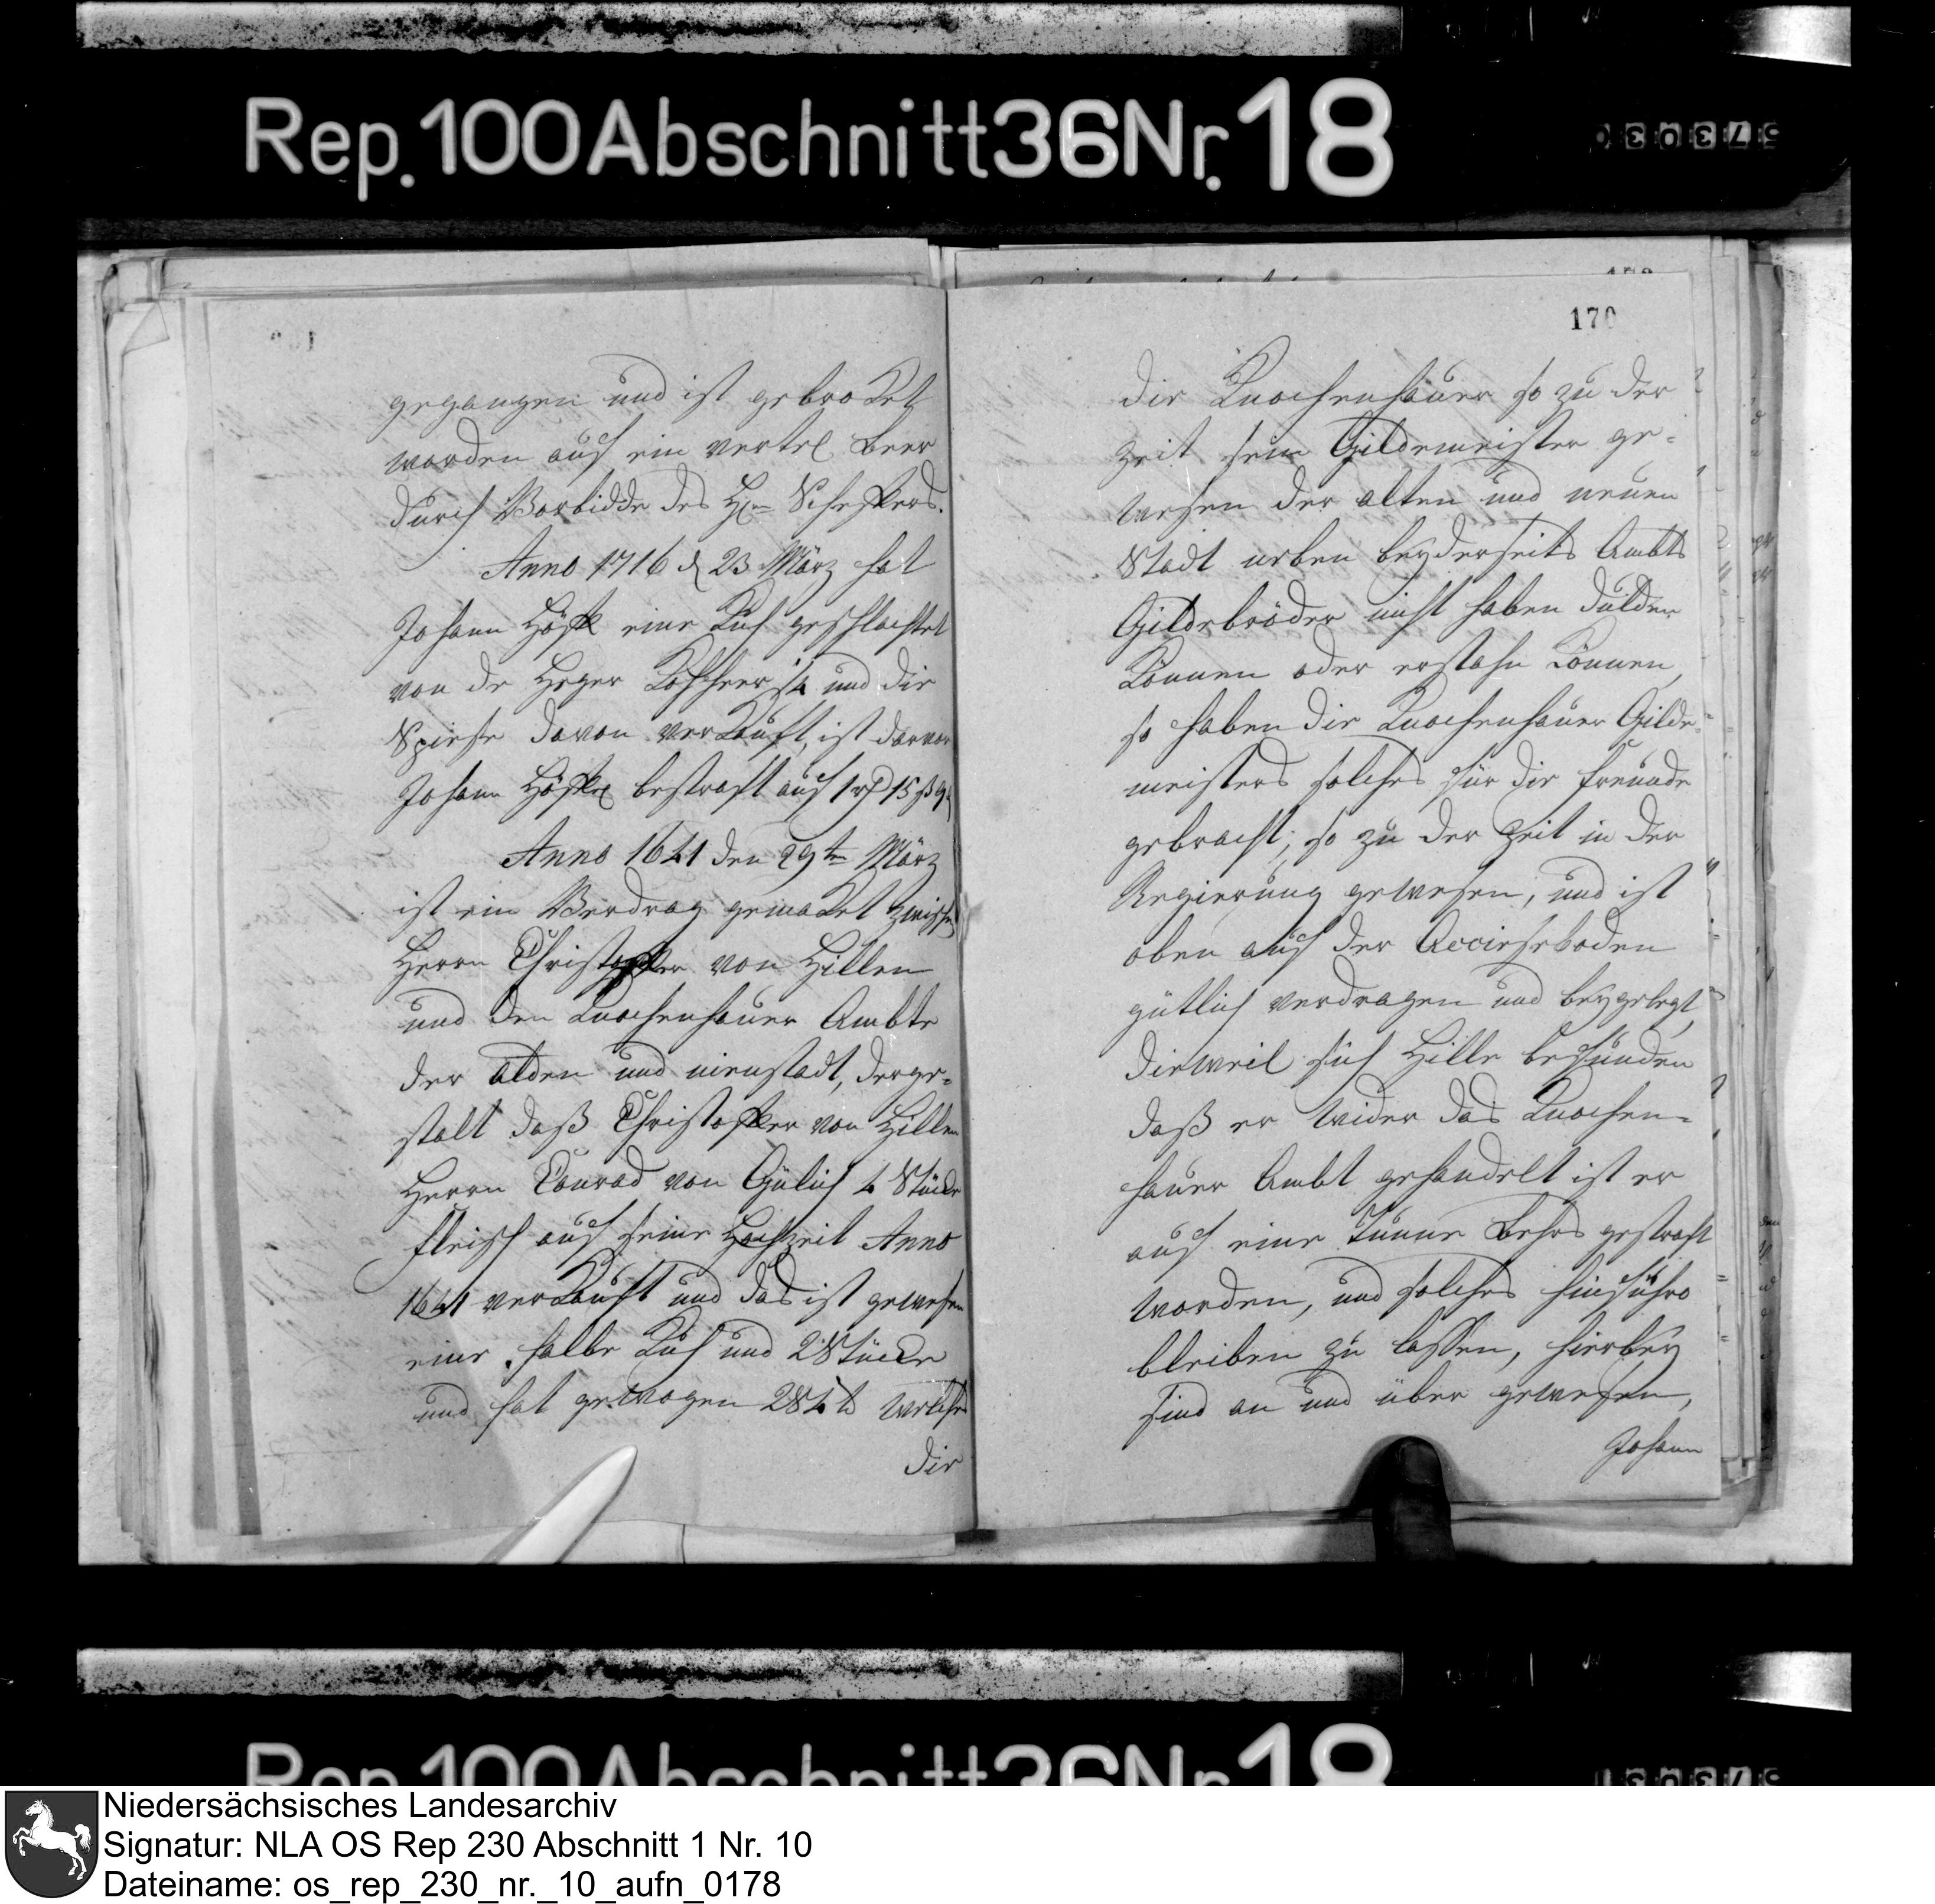 Rep. 100 Abschnitt 36 Nr. 18
gegangen und ist gebroket
worden auf ein vertel Beer
durch Vorbidde des Hrn Scheffers.
Anno 1716 d 23 März hat
Johann eine Kuh geschlachtet
von de Heger und die
Spiese davon verkauft, ist darvor
Johann bestraft auf 1 15 ß 9
Anno 1641 den 29ten März
ist ein Verdrag gemaket zwischen
Herrn Christoffer von Hillen
und den Knochenhauer Ambte
der Olden und nienstadt, derge-
stalt daß Christoffer von Hillen
Herrn Conrad von Gülich 4 Stücke
fleisch auf seine Hochzeit Anno
1641 verkauft und das ist gewesen
eine halbe Kuh und 2 Stücke
und hat gewogen 284 ℔ welches
die
170
die Knochenhauer so zu der
Zeit sein Gildemeister ge-
wesen der alten und neuen
Stadt neben beyderseits Ambts
Gildebröder nicht haben dulden
können oder erstahn können,
so haben die Knochenhauer Gilde-
meisters solches für die freunde
gebracht; so zu der Zeit in der
Regierung gewesen, und ist
oben auf der Accieseboden
gütlich verdragen und beygelegt,
dieweil sich Hille befunden
daß er wider das Knochen-
hauer Ambt gehandelt ist er
auf eine Tunne Behrs gestraft
worden, und solches hinführo
bleiben zu lassen, hierbey
sind an und über gewesen,
Johann
Rep. 100 Abschnitt 36 Nr. 18
Niedersächsisches Landesarchiv
Signatur: NLA OS Rep 230 Abschnitt 1 Nr. 10
Dateiname: os_rep_230_nr._10_aufn_0178